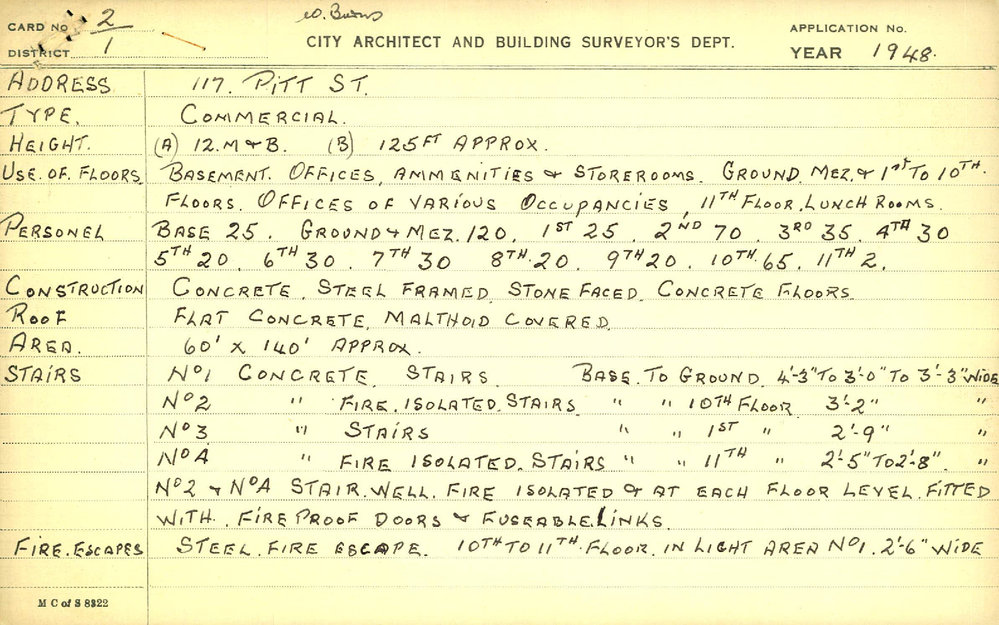 CARD No. 2
W. Burns
DISTRICT 1
CITY ARCHITECT AND BUILDING SURVEYOR'S DEPT.
APPLICATION No.
YEAR 1948.
ADDRESS 117. PITT ST.
TYPE. COMMERCIAL.
HEIGHT. (A) 12. M & B. (B) 125 FT APPROX.
USE. OF. FLOORS. BASEMENT. OFFICES, AMMENITIES & STOREROOMS. GROUND. MEZ. & 1ST TO 10TH.
FLOORS. OFFICES OF VARIOUS OCCUPANCIES, 11TH FLOOR. LUNCH ROOMS.
PERSONEL BASE 25. GROUND & MEZ. 120. 1ST 25. 2ND 70. 3RD 35. 4TH 30
5TH 20. 6TH 30. 7TH 30 8TH. 20. 9TH 20. 10TH. 65. 11TH 2.
CONSTRUCTION CONCRETE. STEEL FRAMED. STONE FACED. CONCRETE FLOORS.
ROOF FLAT CONCRETE, MALTHOID COVERED.
AREA. 60' x 140' APPROX.
STAIRS No1 CONCRETE. STAIRS. BASE. TO GROUND. 4'-3" TO 3'-0" TO 3'-3" WIDE
No2 " FIRE. ISOLATED. STAIRS. " " 10TH FLOOR 3'-2" "
No3 " STAIRS " " 1ST " 2'-9" "
No4 " FIRE ISOLATED. STAIRS " " 11TH " 2'-5" TO 2'-8". "
No2 & No4 STAIR. WELL. FIRE ISOLATED & AT EACH FLOOR LEVEL. FITTED
WITH. FIRE PROOF DOORS & FUSEABLE. LINKS.
FIRE. ESCAPES STEEL. FIRE ESCAPE. 10TH TO 11TH. FLOOR. IN LIGHT AREA No1. 2'-6" WIDE
M C of S 8322